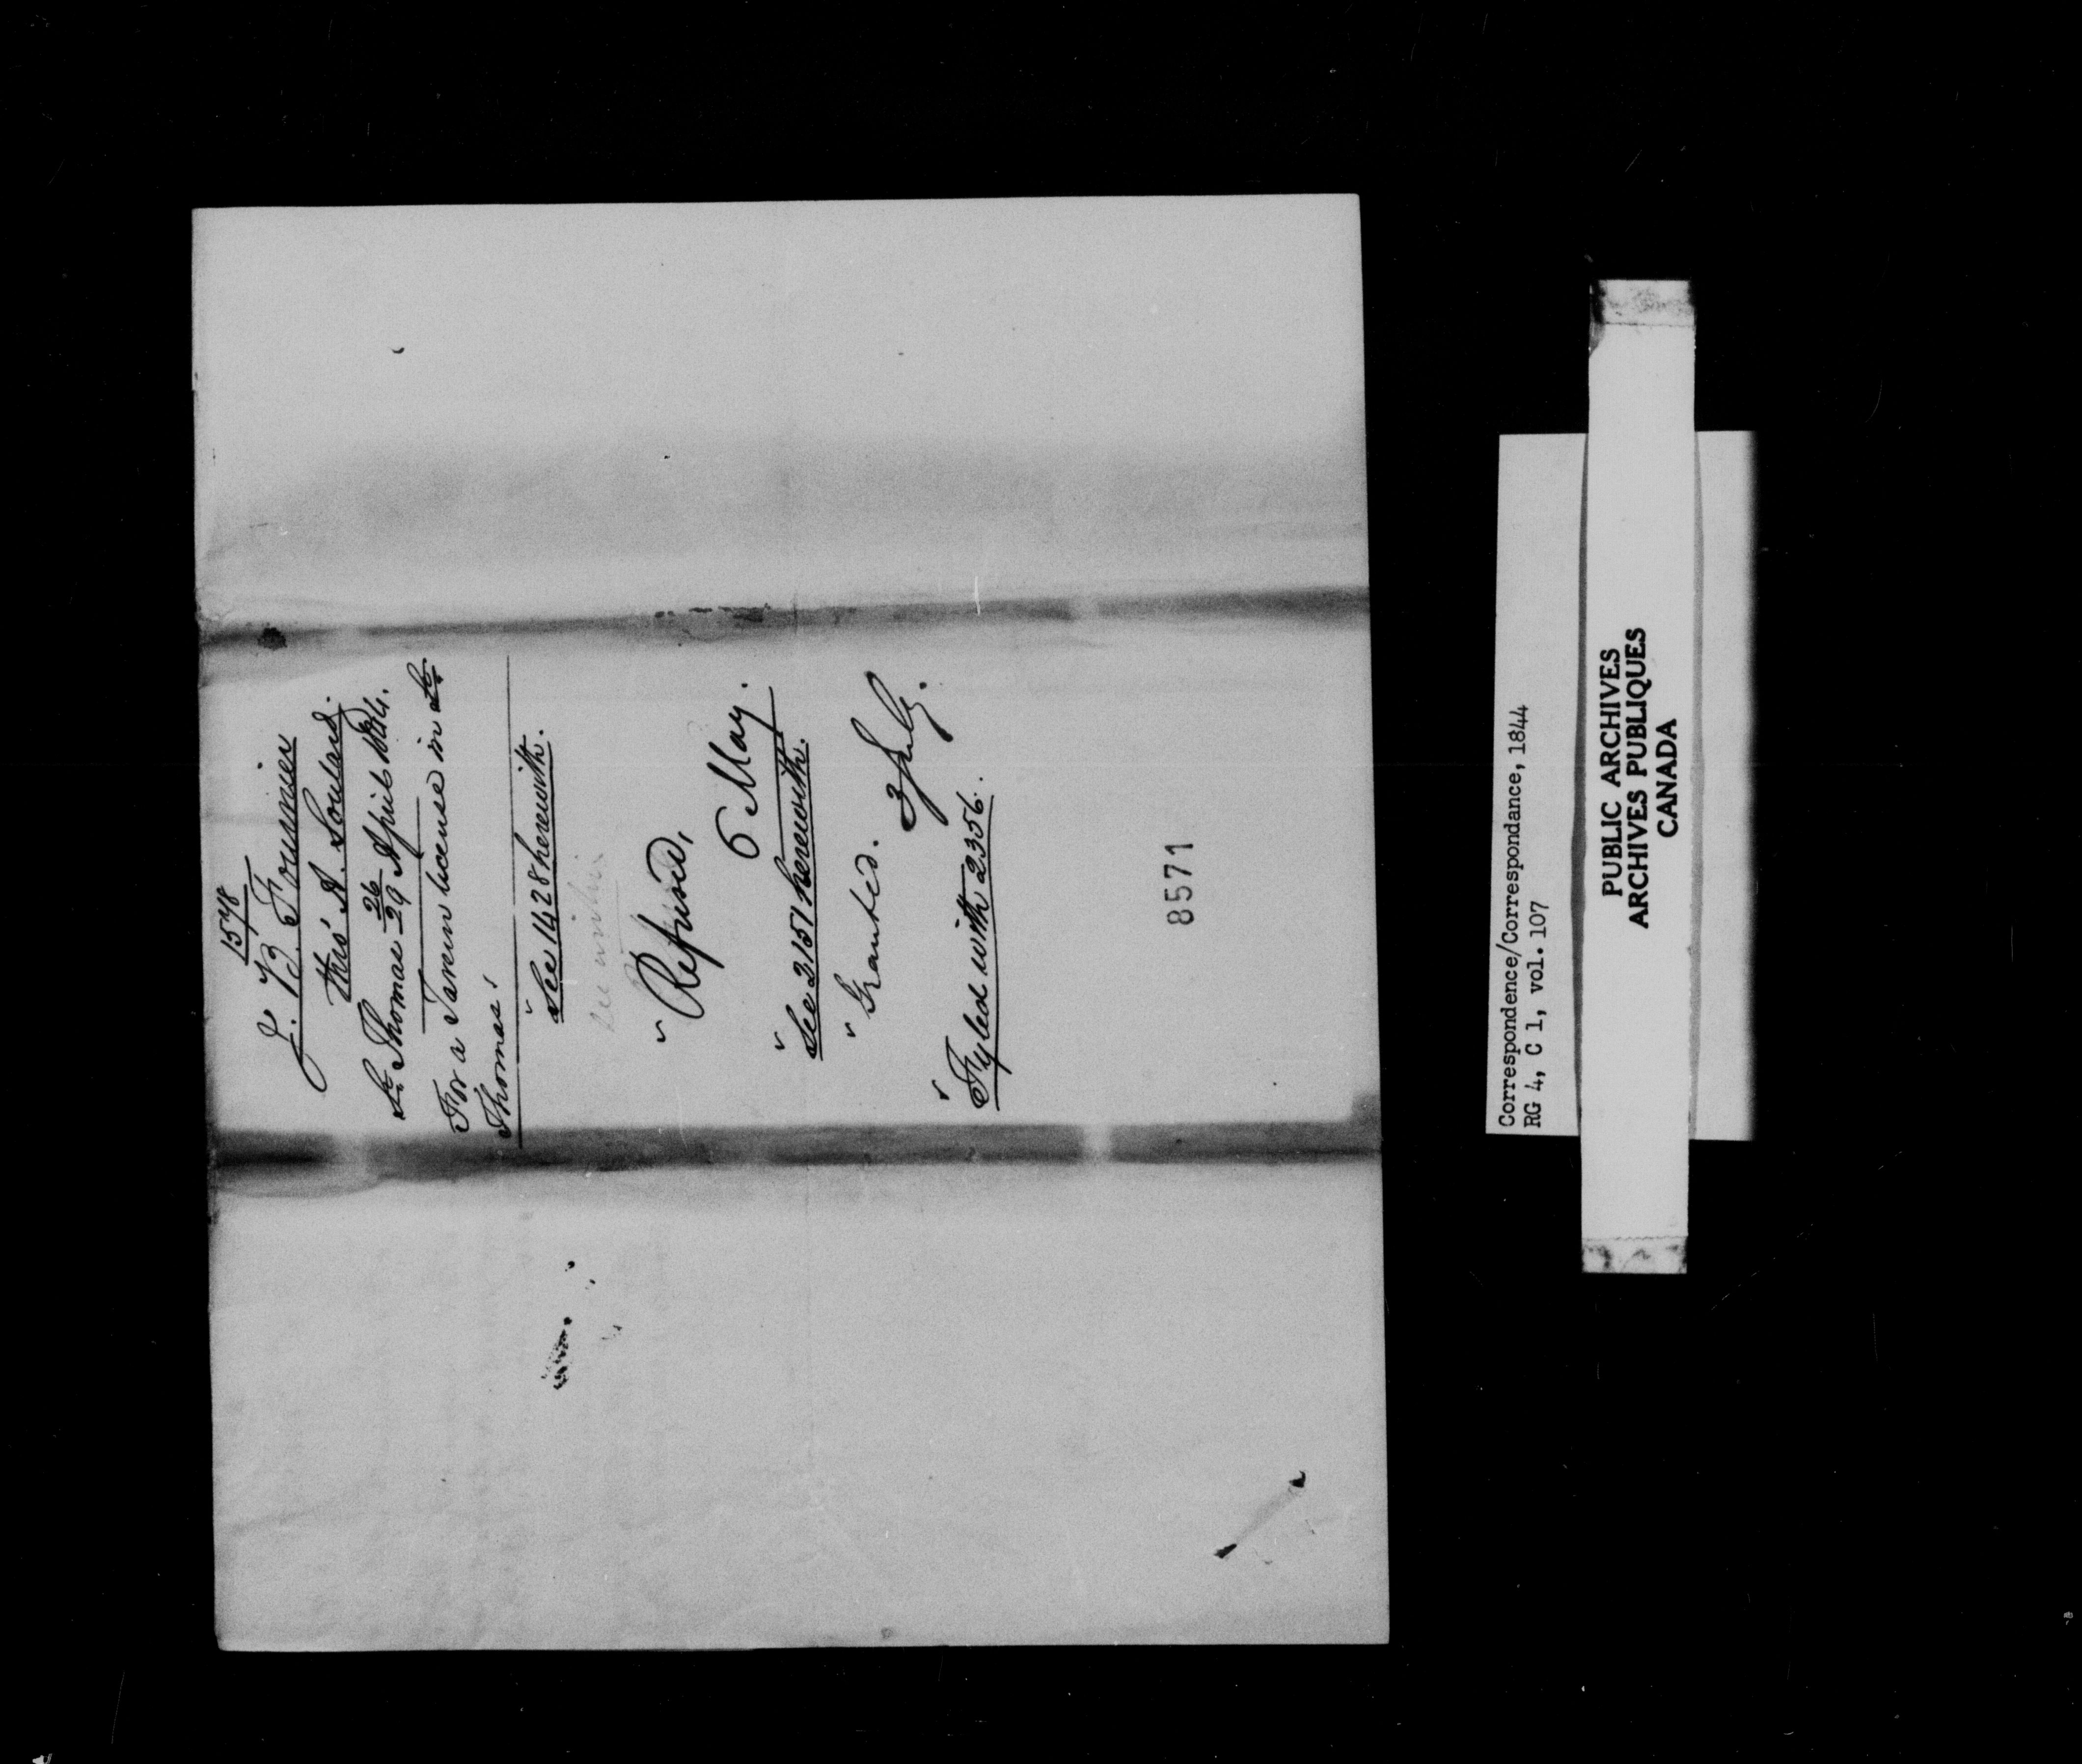 1578
J. B. Fournier
thro' A. Soulard.
St. Thomas 26/29 April 1844.
For a Tavern license in St.
Thomas'
See 1428 herewith.
see within
Refused,
6 May.
See 2151 herewith.
Granted.
3 July.
Fyled with 2356.
8571
Correspondence/Correspondance, 1844
RG 4, C 1, vol. 107
PUBLIC ARCHIVES
ARCHIVES PUBLIQUES
CANADA